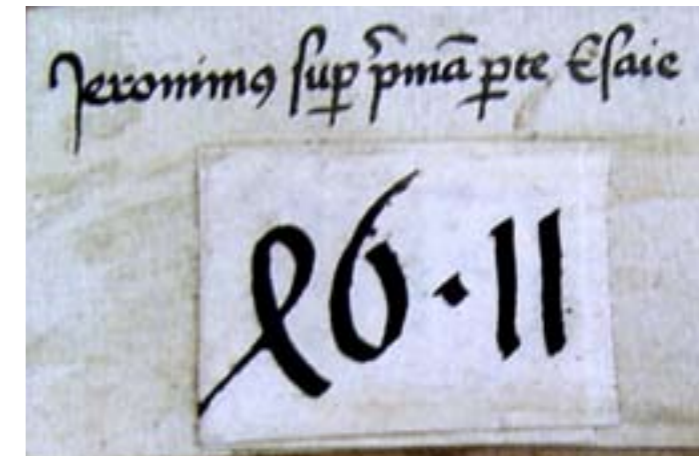 Jeronimꝯ suꝑ pͥmā ꝑte Esaie
46·11